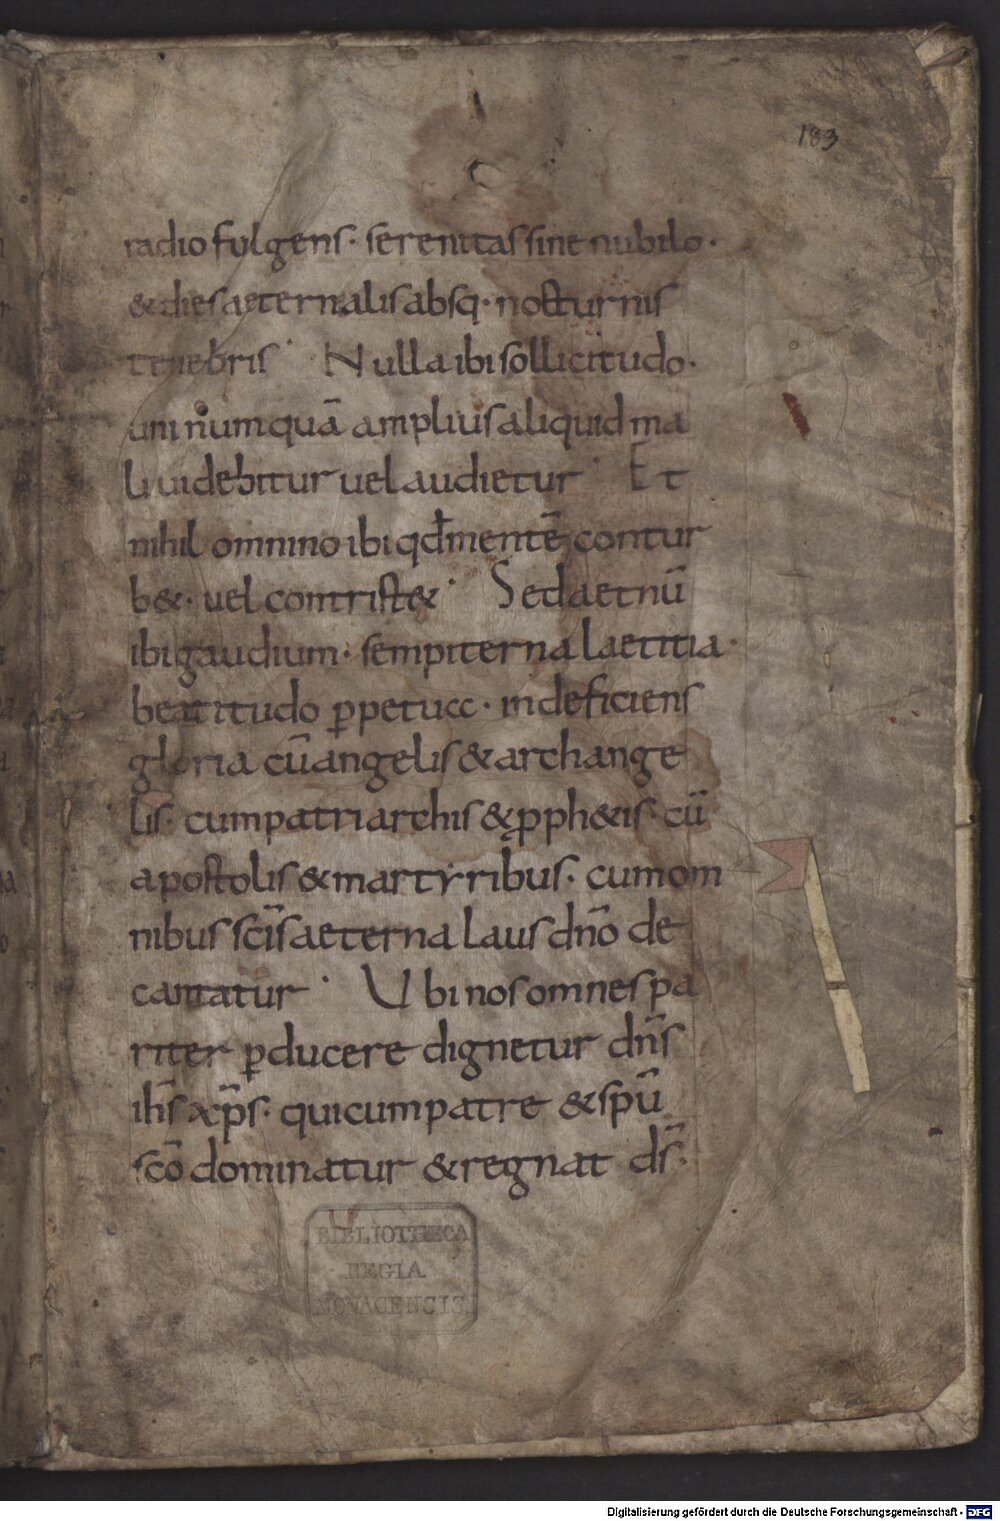 183
radio fulgens· serenitas sine nubilo·
& dies aeternalis absq· nocturnis
tenebris· Nulla ibi sollicitudo·
uni numquā amplius aliquid ma
li uidebitur uel audietur· Et
nihil omnino ibi qđ mentē contur
b&· uel contrist&· Sed aetnū
ibi gaudium· sempiterna laetitia·
beatitudo ꝑpetua· indeficiens
gloria cū angelis & archange
lis· cum patriarchis & ꝓph&is· cū
apostolis & martyribus· cum om
nibus sc̄is aeterna laus dn̄o de
cantatur· Ubi nos omnes pa
riter ꝑducere dignetur dn̄s
ih̄s xp̄s· qui cum patre & spū
sc̄o dominatur & regnat d̄s·
BIBLIOTHECA
REGIA
MONACENSIS
Digitalisierung gefördert durch die Deutsche Forschungsgemeinschaft - DFG